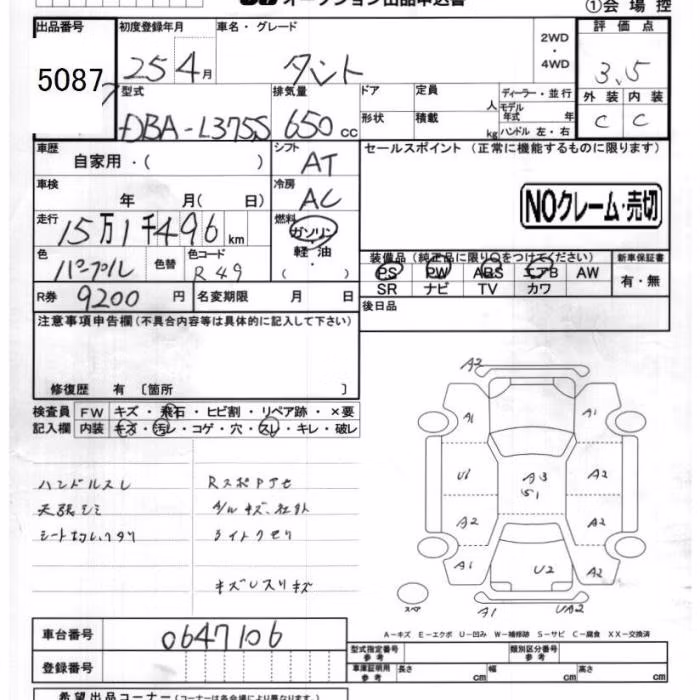 オークション出品申込書
①会場控
出品番号 初度登録年月 車名・グレード 2WD・4WD 評価点
5087 25 4月 タント 3.5
型式 排気量 ドア 定員 人 ディーラー・並行 外装 内装
モデル年式 年
DBA-L375S 650cc 形状 積載 kg ハンドル 左・右 C C
車歴 自家用・( ) シフト AT セールスポイント (正常に機能するものに限ります)
車検 年 月( 日) 冷房 AC NOクレーム・売切
走行 15万1千496km 燃料 ガソリン・軽油・( )
装備品 (純正品に限り○をつけてください) 新車保証書
色 パープル 色替 色コード R49 PS PW ABS エアB AW 有・無
SR ナビ TV カワ
R券 9200円 名変期限 月 日 後日品
注意事項申告欄(不具合内容等は具体的に記入して下さい)
修復歴 有 〔箇所 〕
検査員 FW キズ・飛石・ヒビ割・リペア跡・×要
記入欄 内装 キズ・汚レ・コゲ・穴・スレ・キレ・破レ
A2
A1 A1
U1 A3 A2
S1
A2 A2
A1 U2 A2
スペア A1 UA2
ハンドルスレ
天張シミ
ライトクモリ
キズレスリキズ
A-キズ E-エクボ U-凹み W-補修跡 S-サビ C-腐食 XX-交換済
車台番号 0647106
型式指定番号 参考 類別区分番号 参考
登録番号 車庫証明用 参考 長さ cm 幅 cm 高さ cm
希望出品コーナー(コーナーは各会場により異なります。)